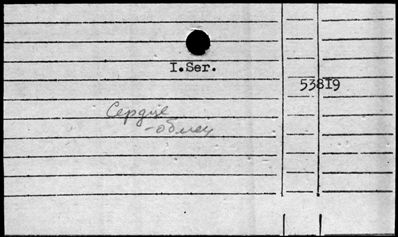 I.Ser.
53819
Сердце
-обмен